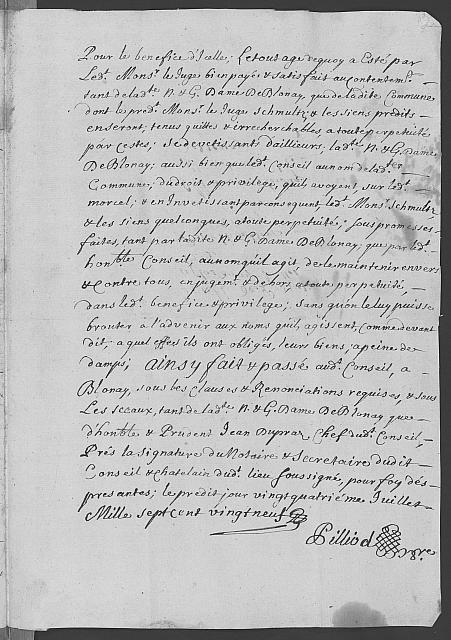 Pour le benefice d'Icelle; Le tout age dequoy a Esté par
Led.t Mons.r le Juge bien payé & satisfait au contentem.t
tant de lad.te N. & G. Dame De Blonay, que de ladite Commune
dont le pred.t Mons.r le Juge Schmultz & les siens predits
en seront; tenus quittes & irrecherchables, a toute perpetuité
par cestes; se devetissants d'ailleurs, lad.te N. & G. Dame
De Blonay; aussi bien que led.t Conseil au nom de lad.te
Commune, du droit & privilege, quil avoyent, sur led.t
morcel; & en Investissant par consequent, led.t Mons.r Schmultz
& les siens quelconques, a toute perpetuité; sous promesses
faites tant par ladite N. & G. Dame De Blonay; que par led.t
hon.ble Conseil, au nom quil agit, de le maintenir envers
& Contre tous, en jugem.t & dehors, a toute perpetuité
dans led.t benefice & privilege; sans quon le luy puisse
brouter à l'advenir aux noms quil agissent, Comme devant
dit; a quel effets ils ont obligés, leurs biens, a peine de
damps; ainsy fait & passé aud.t Conseil, a
Blonay, sous les Clauses & Renonciations requises, & sous
Les sceaux, tant de lad.te N. & G. Dame De Blonay que
d'hon.ble & Prudent Jean Dupraz Chef dud.t Conseil
Prés la signature du Notaire & Secretaire dudit
Conseil & Chatelain dud.t lieu soussigné, pour foy dés
presantes; le predit jour vingt quatriéme Juillet
Mille sept cent vingt neuf
Pilliod n.re